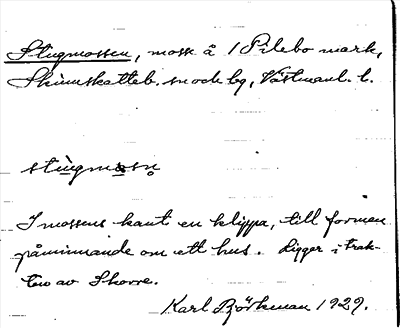 Stugmossen, mosse å / Pilebo mark,
Skinnskatteb. sn och bg, Västmanl. l.
stùgmåsn̥
I mossens kant en klippa, till formen
påminnande om ett hus. Ligger i trak-
ten av Skorre.
Karl Björkman 1929.